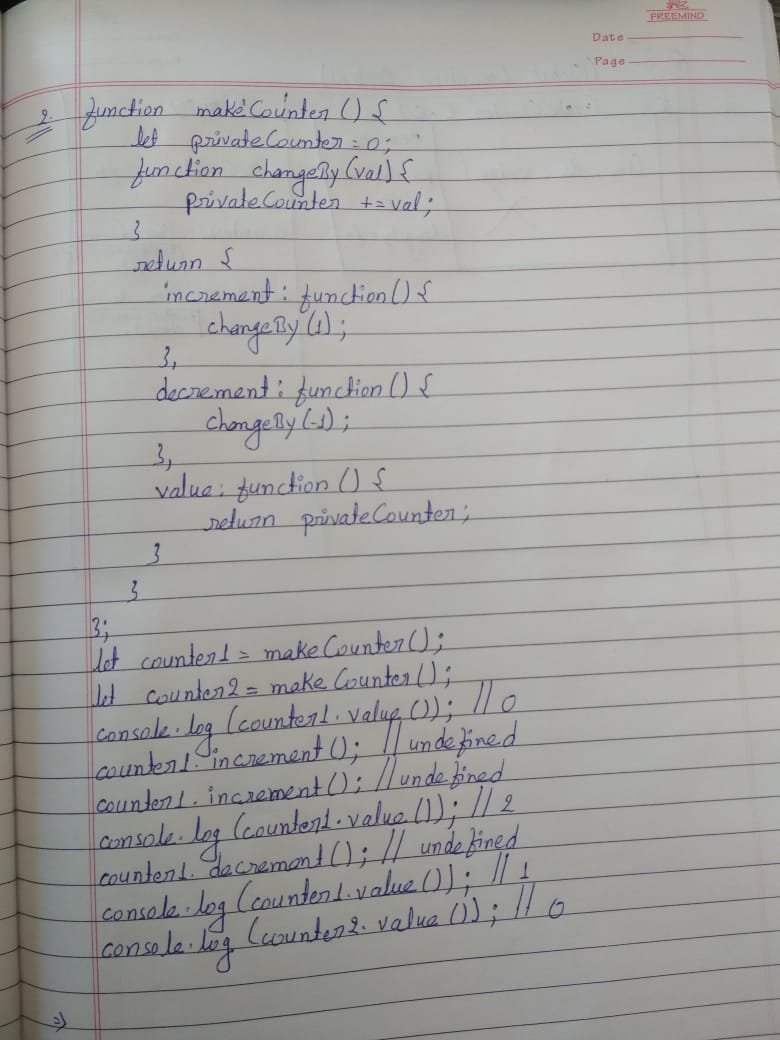 FREEMIND
Date
Page
2. function makeCounter () {
let privateCounter = 0;
function changeBy (val) {
privateCounter += val;
}
return {
increment : function() {
changeBy (1) ;
},
decrement : function () {
changeBy (-1) ;
},
value : function () {
return privateCounter;
}
}
};
let counter1 = makeCounter();
let counter2 = makeCounter();
console.log (counter1.value ()); // 0
counter1.increment (); // undefined
counter1.increment (); // undefined
console.log (counter1.value ()); // 2
counter1.decrement (); // undefined
console.log (counter1.value ()); // 1
console.log (counter2.value ()); // 0
⇒